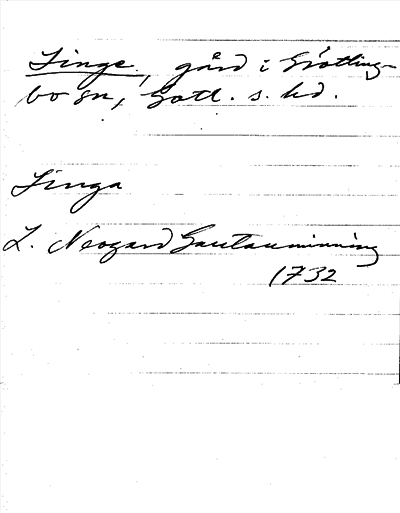 Singe, gård i Grötling-
bo sn, Gotl. s. hd.
Singa
L. Neogard Gautauminning
1732